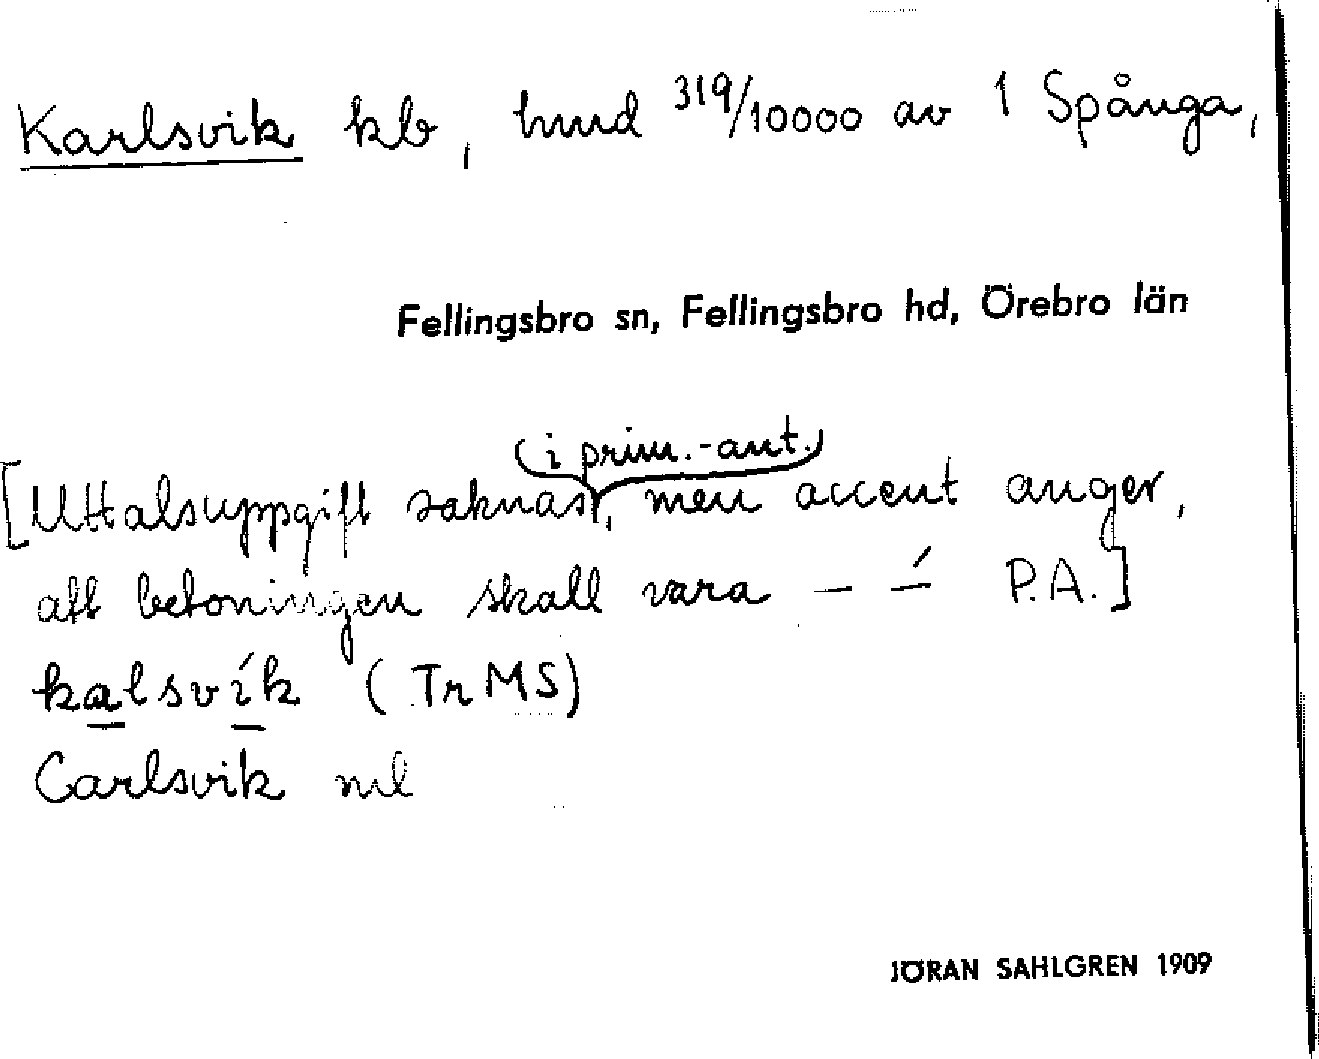 Karlsvik kb, hmd 319/10000 av 1 Spånga,
Fellingsbro sn, Fellingsbro hd, Örebro län
(i prim.-ant.)
[Uttalsuppgift saknas, men accent anger,
att betoningen skall vara – –́ P.A.]
kalsvík (TrMS)
Carlsvik ml
JÖRAN SAHLGREN 1909